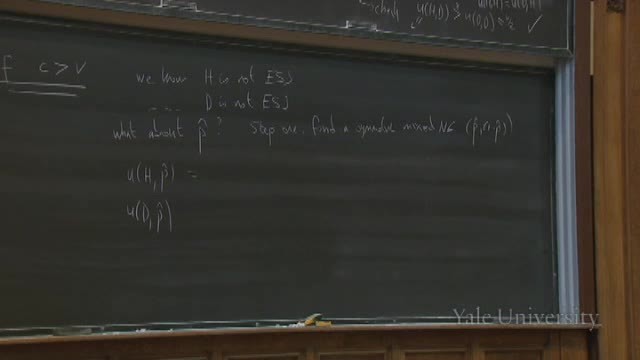 u(H,D) >
u(D,D)
✓
if c > v
we know H is not ESS
.... D is not ESS
what about p̂? Step one. find a symmetric mixed NE (p̂, 1-p̂)
u(H, p̂) =
u(D, p̂)
Yale University